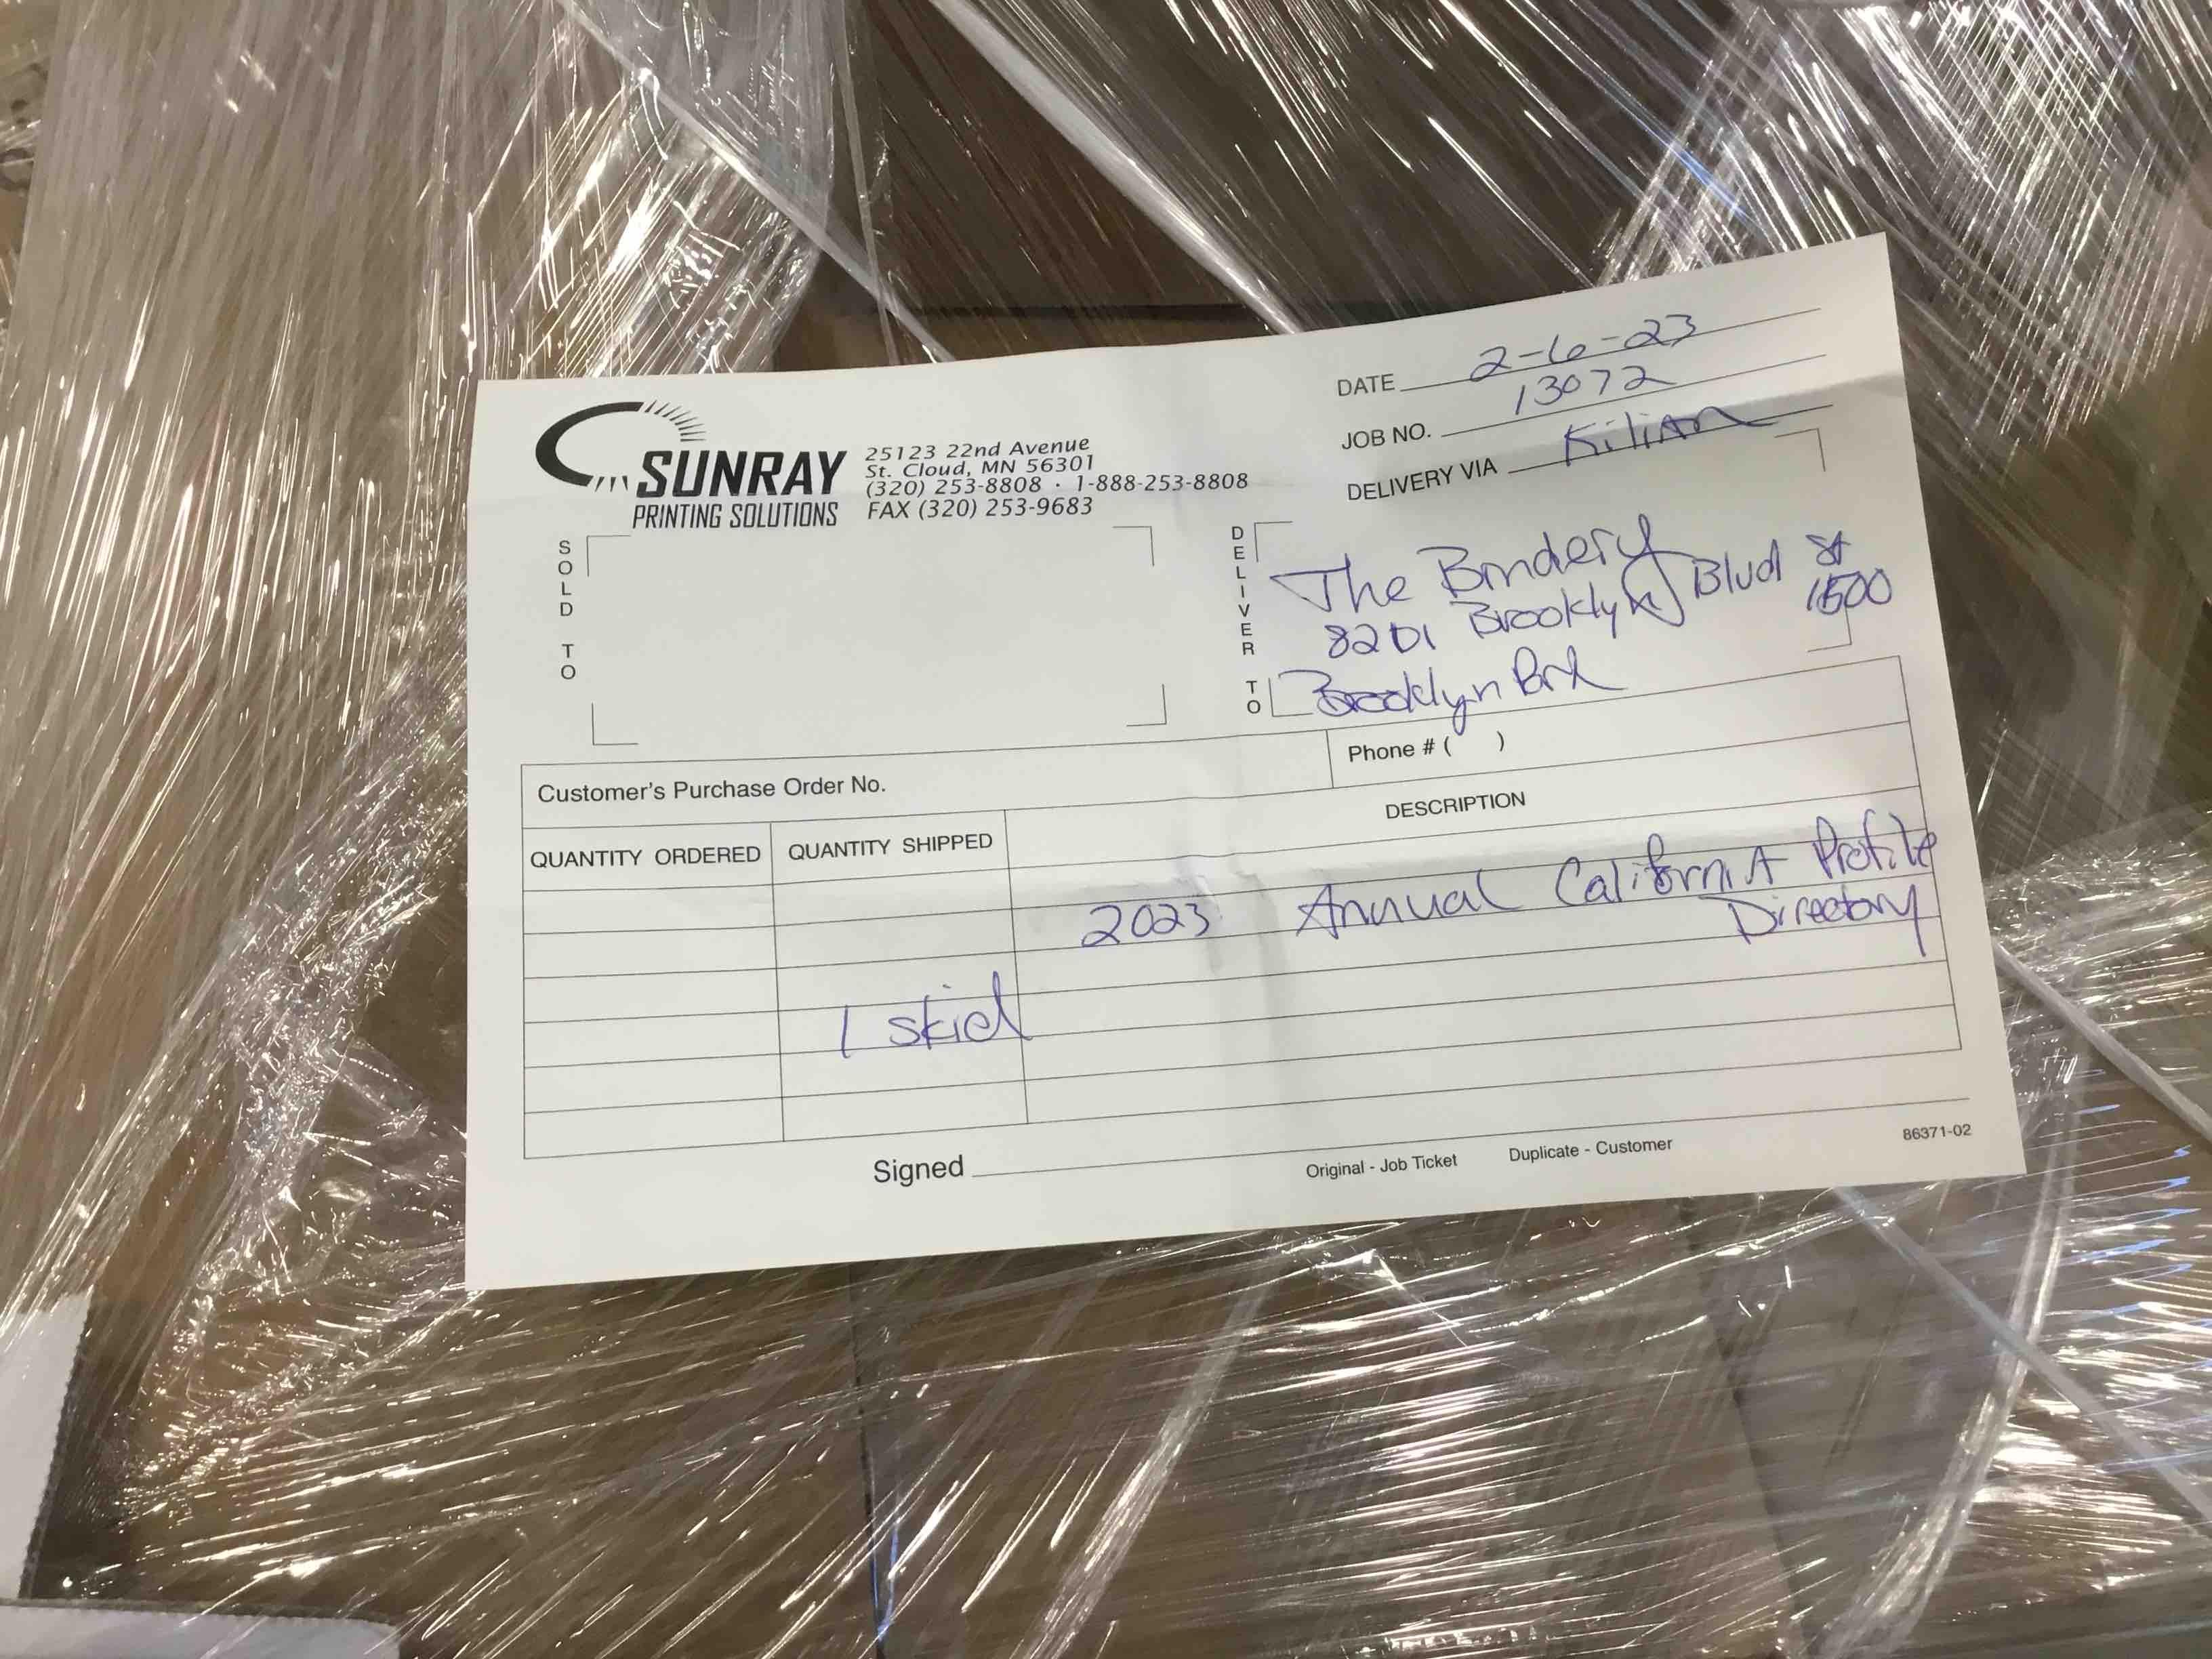 SUNRAY
PRINTING SOLUTIONS
25123 22nd Avenue
St. Cloud, MN 56301
(320) 253-8808 · 1-888-253-8808
FAX (320) 253-9683
DATE 2-6-23
JOB NO. 13072
DELIVERY VIA Kilian
SOLD TO
DELIVER TO
The Bindery
8201 Brooklyn Blvd St
1500
Brooklyn Prk
Customer's Purchase Order No.
Phone # ( )
QUANTITY ORDERED QUANTITY SHIPPED DESCRIPTION
2023 Annual California Profile
Directory
1 skid
Signed
Original - Job Ticket Duplicate - Customer
86371-02